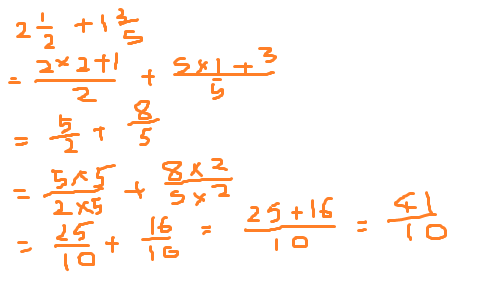 2 1/2 + 1 3/5
= (2×2+1)/2 + (5×1+3)/5
= 5/2 + 8/5
= (5×5)/(2×5) + (8×2)/(5×2)
= 25/10 + 16/10 = (25+16)/10 = 41/10